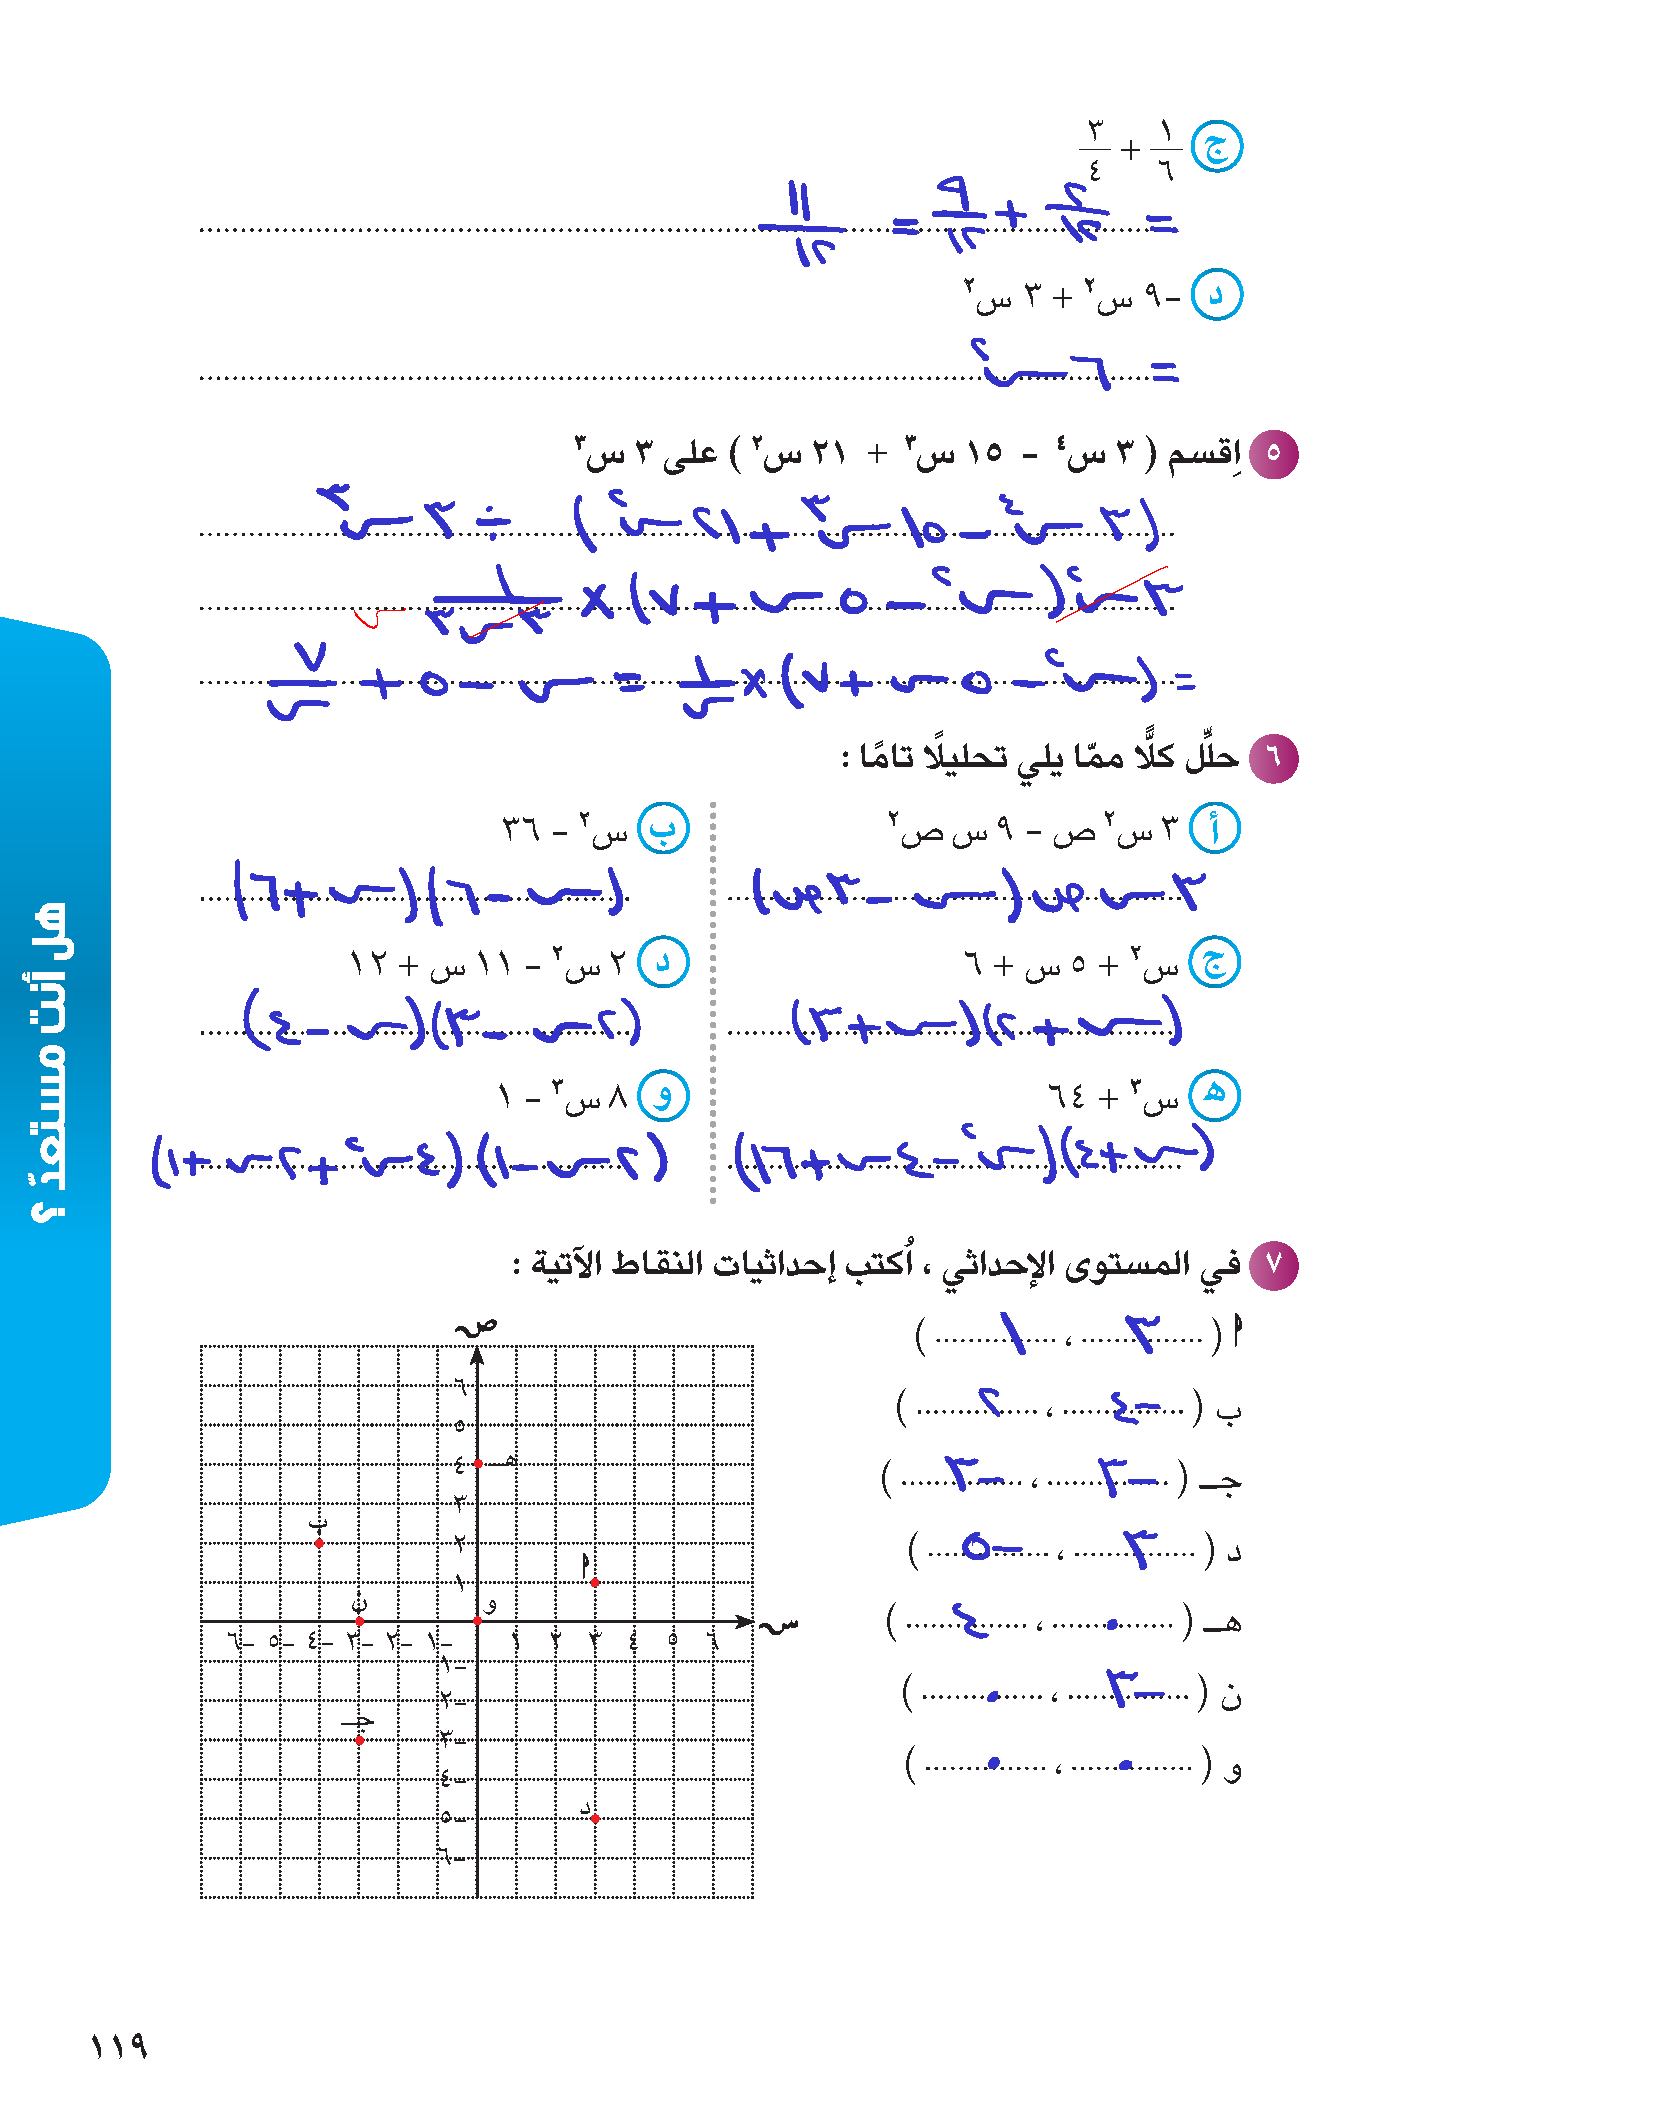 ج ١/٦ + ٣/٤
= ٢/١٢ + ٩/١٢ = ١١/١٢
د -٩ س² + ٣ س²
= ٦ س²
٥ اِقسم ( ٣ س⁴ - ١٥ س³ + ٢١ س² ) على ٣ س³
(٣ س⁴ - ١٥ س³ + ٢١ س²) ÷ ٣ س³
٣ س² (س² - ٥ س + ٧) × ١/٣ س³
= (س² - ٥ س + ٧) × ١/س = س - ٥ + ٧/س
٦ حلِّل كلًّا ممّا يلي تحليلًا تامًا :
أ ٣ س² ص - ٩ س ص²
٣ س ص (س - ٣ ص)
ب س² - ٣٦
(س - ٦)(س + ٦)
ج س² + ٥ س + ٦
(س + ٢)(س + ٣)
د ٢ س² - ١١ س + ١٢
(٢ س - ٣)(س - ٤)
هـ س³ + ٦٤
(س + ٤)(س² - ٤ س + ١٦)
و ٨ س³ - ١
(٢ س - ١)(٤ س² + ٢ س + ١)
٧ في المستوى الإحداثي ، اُكتب إحداثيات النقاط الآتية :
ا ( ٣ ، ١ )
ب ( -٤ ، ٢ )
جـ ( -٣ ، -٣ )
د ( ٣ ، -٥ )
هـ ( ٠ ، ٤ )
ن ( -٣ ، ٠ )
و ( ٠ ، ٠ )
ص
٦
٥
٤ هـ
٣
ب ٢
ا ١
ن و
س
-٦ -٥ -٤ -٣ -٢ -١ ١ ٢ ٣ ٤ ٥ ٦
-١
-٢
جـ -٣
-٤
د -٥
-٦
هل أنت مستعدّ ؟
١١٩